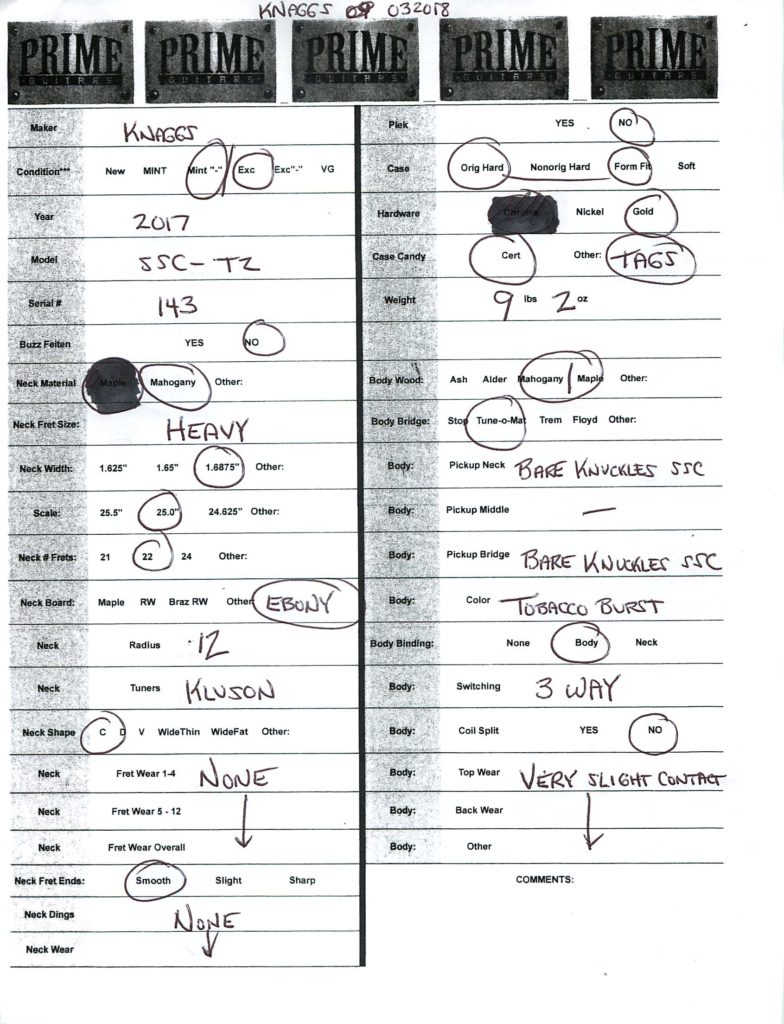 KNAGGS 032018
PRIME PRIME PRIME PRIME PRIME
GUITARS GUITARS GUITARS GUITARS GUITARS
Maker KNAGGS
Condition*** New MINT Mint "-" Exc Exc"-" VG
Year 2017
Model SSC-T2
Serial # 143
Buzz Feiten YES NO
Neck Material Maple Mahogany Other:
Neck Fret Size: HEAVY
Neck Width: 1.625" 1.65" 1.6875" Other:
Scale: 25.5" 25.0" 24.625" Other:
Neck # Frets: 21 22 24 Other:
Neck Board: Maple RW Braz RW Other EBONY
Neck Radius 12
Neck Tuners KLUSON
Neck Shape C D V WideThin WideFat Other:
Neck Fret Wear 1-4 NONE
Neck Fret Wear 5 - 12
Neck Fret Wear Overall
Neck Fret Ends: Smooth Slight Sharp
Neck Dings NONE
Neck Wear
Plek YES NO
Case Orig Hard Nonorig Hard Form Fit Soft
Hardware Chrome Nickel Gold
Case Candy Cert Other: TAGS
Weight 9 lbs 2 oz
Body Wood: Ash Alder Mahogany Maple Other:
Body Bridge: Stop Tune-o-Mat Trem Floyd Other:
Body: Pickup Neck BARE KNUCKLES SSC
Body: Pickup Middle —
Body: Pickup Bridge BARE KNUCKLES SSC
Body: Color TOBACCO BURST
Body Binding: None Body Neck
Body: Switching 3 WAY
Body: Coil Split YES NO
Body: Top Wear VERY SLIGHT CONTACT
Body: Back Wear
Body: Other
COMMENTS: